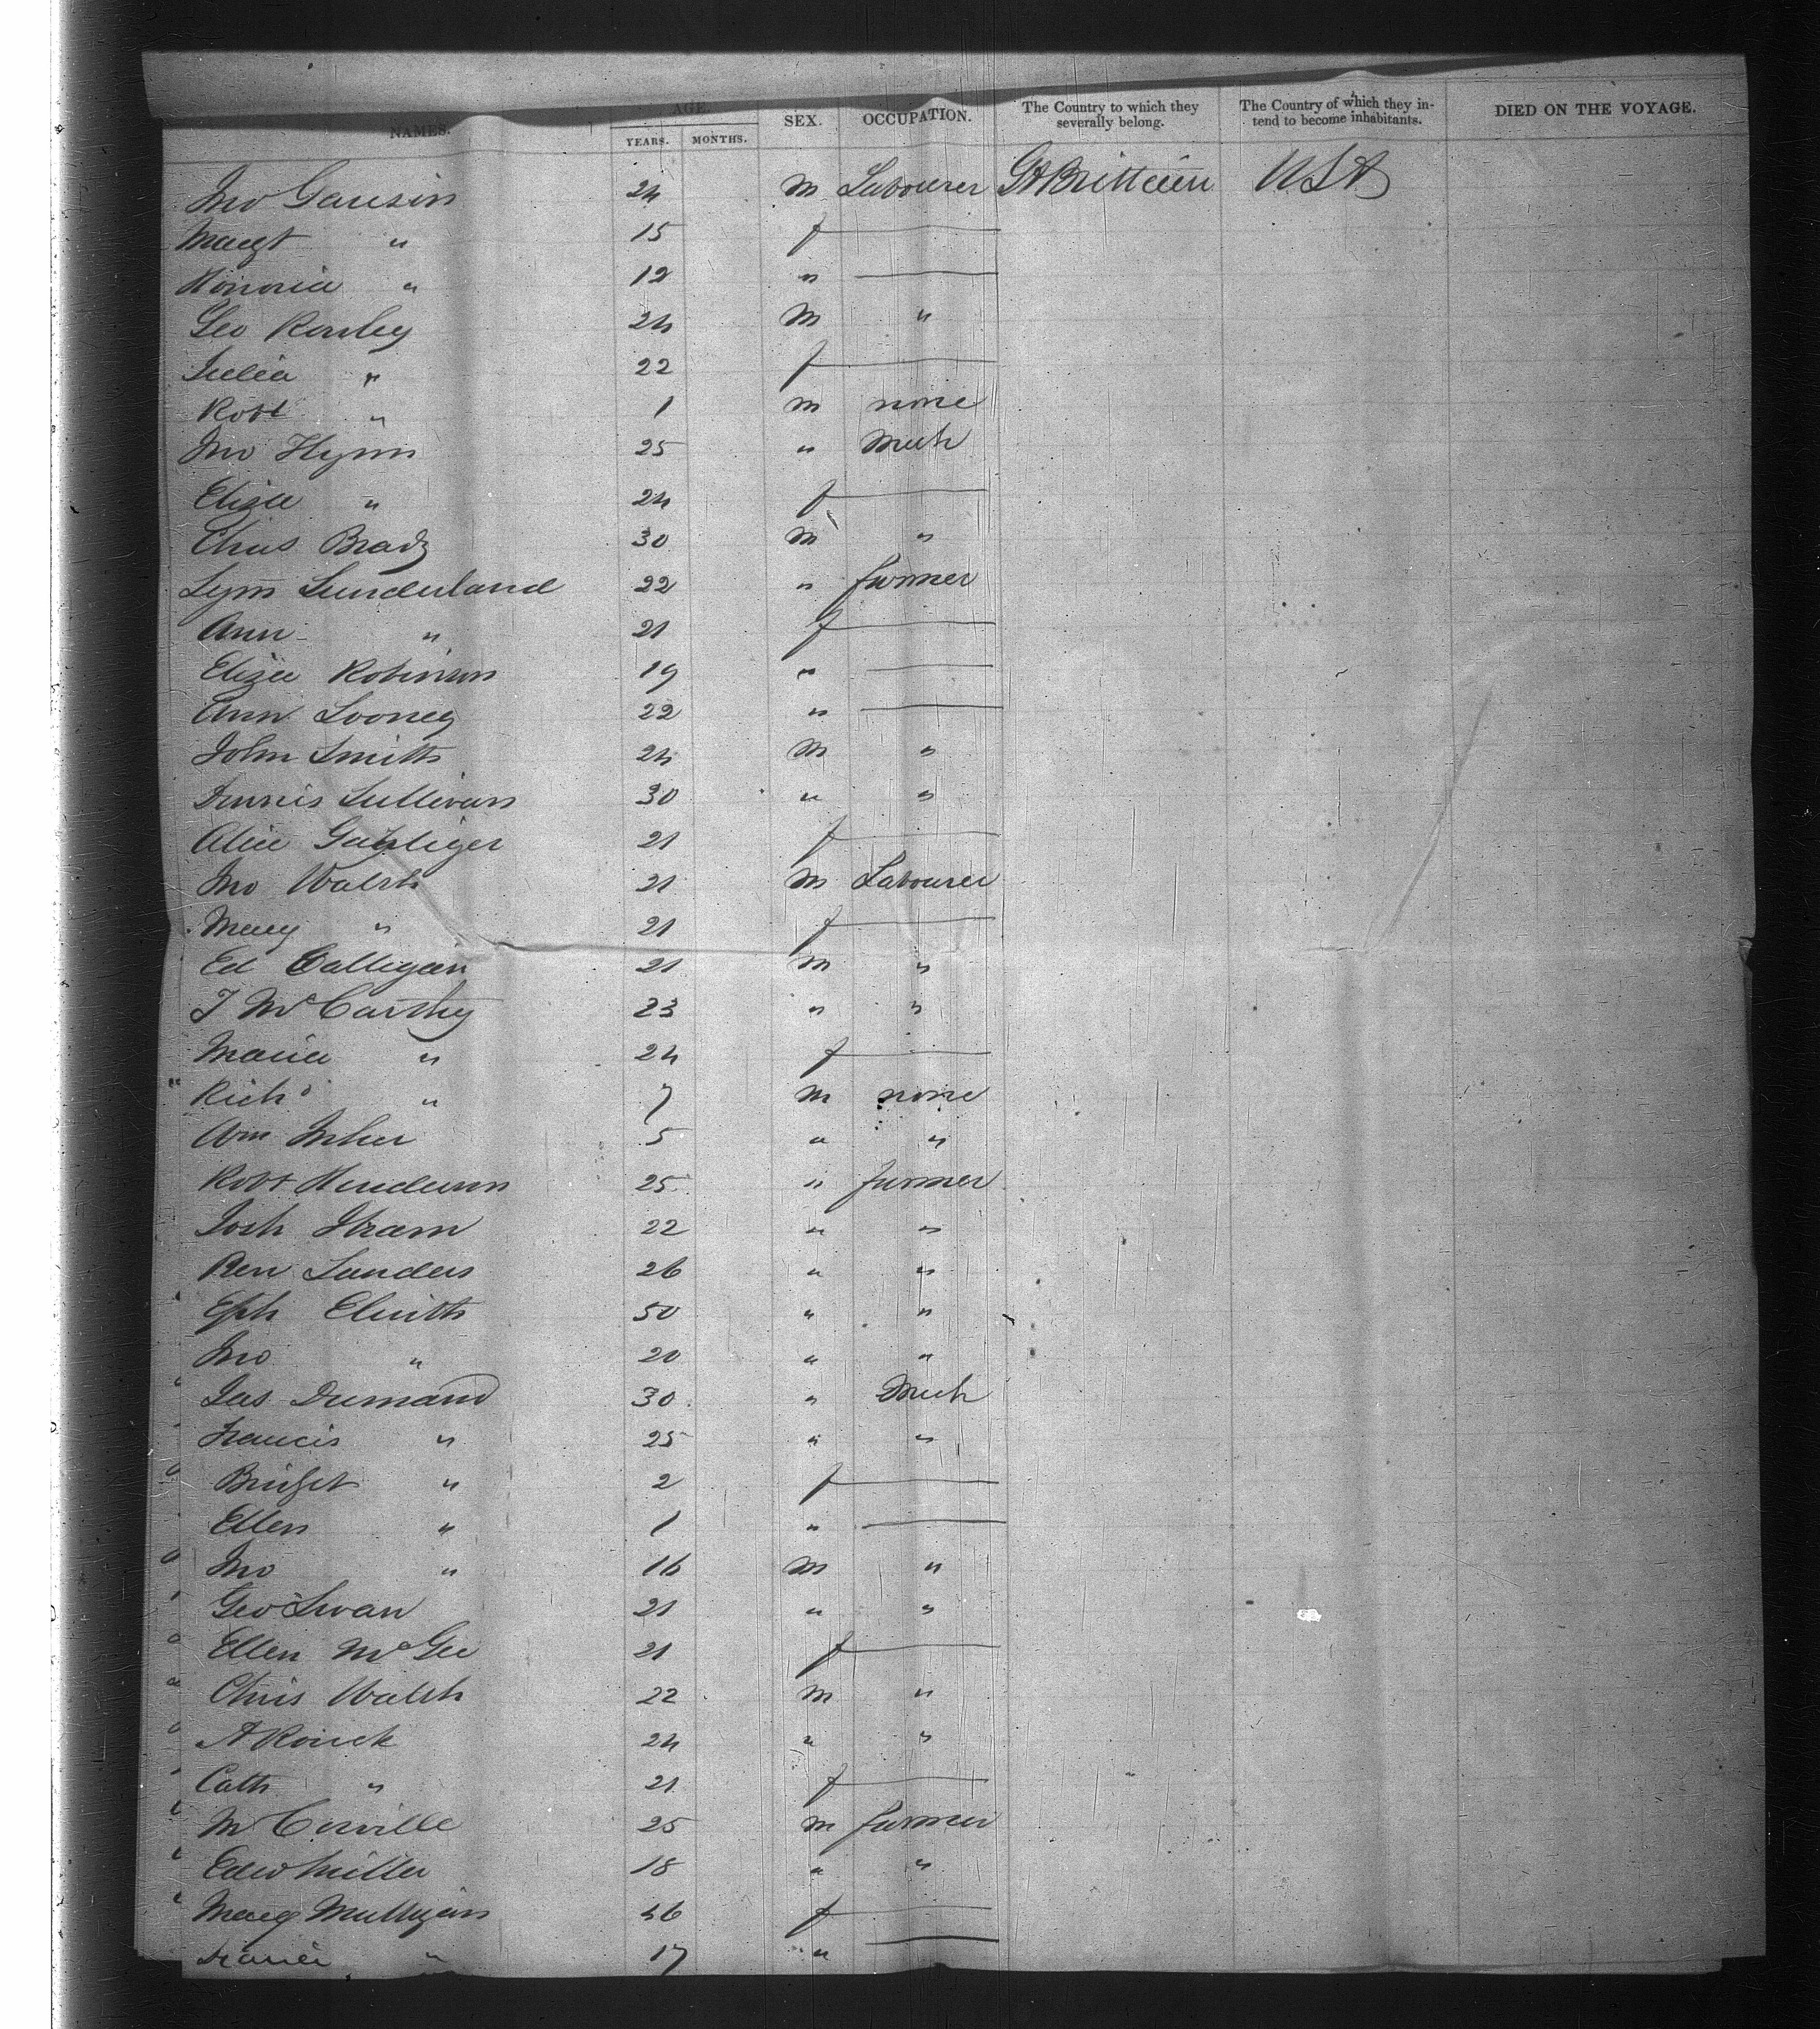 NAMES. AGE. YEARS. MONTHS. SEX. OCCUPATION. The Country to which they severally belong. The Country of which they intend to become inhabitants. DIED ON THE VOYAGE.
Jno 24 m Labourer Gt Brittain USA
Margt " 15 f —
Honoria " 12 " —
Geo Rowley 24 m "
Julia " 22 f —
Robt " 1 m none
Jno Flynn 25 " Mech
Eliza " 24 f —
Chas Brady 30 m "
Sunderland 22 " farmer
Ann " 21 f —
Eliza Robinson 19 " —
Ann Looney 22 " —
John Smith 24 m "
Dennis Sullivan 30 " "
Alice 21 f —
Jno Walsh 21 m Labourer
Mary " 21 f —
Ed Calligan 21 m "
T McCarthy 23 " "
Maria " 24 f —
Richd " 7 m none
5 " "
Robt Henderson 25 " farmer
Josh 22 " "
Ben Sanders 26 " "
Eph 50 " "
Jno " 20 " "
Jas 30 " Mech
Francis " 25 " "
Bridget " 2 f —
Ellen " 1 " —
Jno " 16 m "
Geo Swan 21 " "
Ellen McGee 21 f —
Chris Walsh 22 m "
A 24 " "
Cath " 21 f —
M 25 m farmer
Edw Miller 18 " "
Mary Mulligan 46 f —
" 17 " —